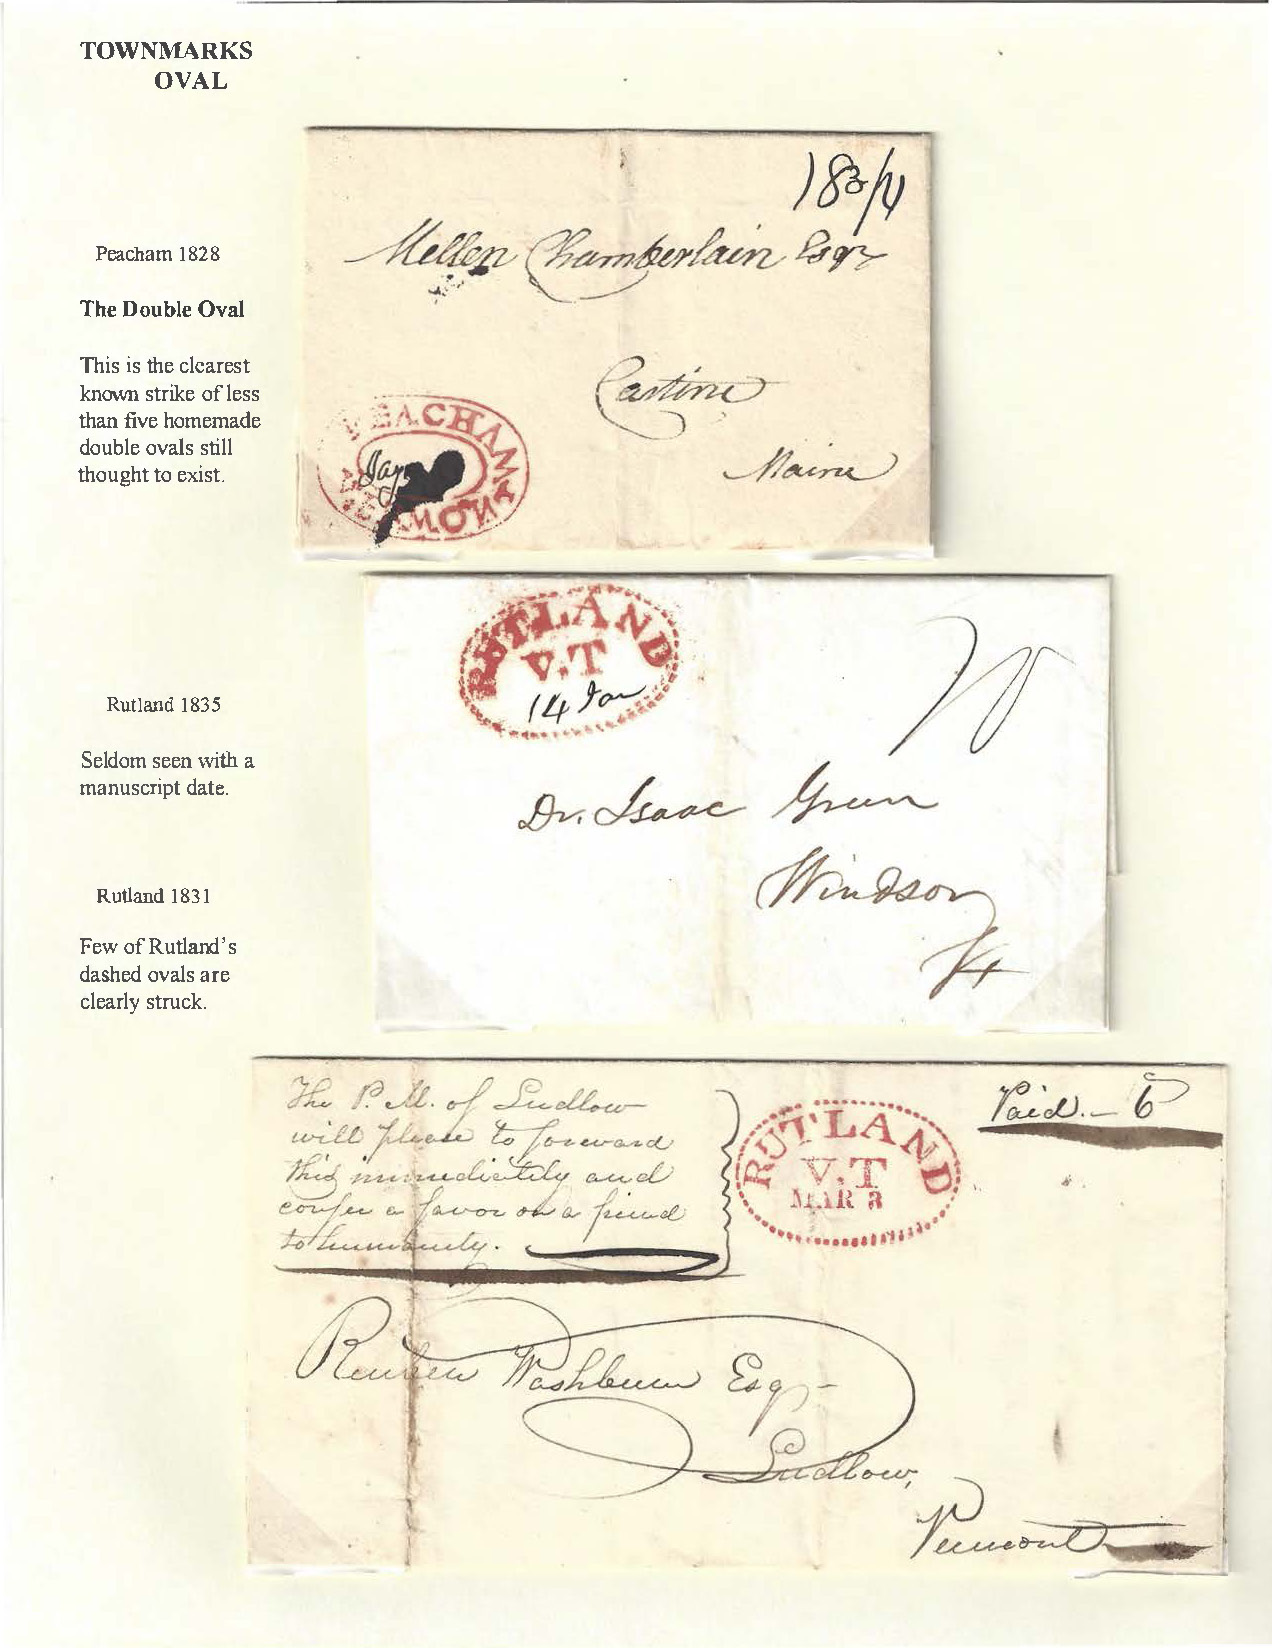 TOWNMARKS
OVAL
Peacham 1828
The Double Oval
This is the clearest
known strike of less
than five homemade
double ovals still
thought to exist.
18 3/4
Mellen Chamberlain Esqr
Castine
Maine
PEACHAM
VERMONT
Rutland 1835
Seldom seen with a
manuscript date.
RUTLAND
V.T
14 Jan
10
Dr. Isaac Green
Windsor
Vt
Rutland 1831
Few of Rutland's
dashed ovals are
clearly struck.
The P. M. of Ludlow
will please to forward
this immediately and
confer a favor on a friend
to humanity.
RUTLAND
V.T
MAR 3
Paid. - 6
Reuben Washburn Esq -
Ludlow,
Vermont